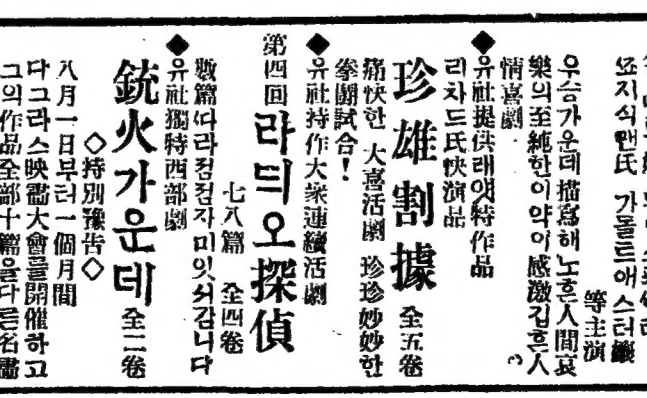 等主演
우슴가운데描寫해노흔人間哀
樂의至純한이약이感激깁흔人
情喜劇
◆유社提供래얫特作品
리차드氏快演品
珍雄割據 全五卷
痛快한 大喜活劇 珍珍妙妙한
拳鬪試合!
◆유社特作大衆連續活劇
第四回 라듸오探偵
七八篇 全四卷
數篇따라점점자미잇서감니다
◆유社獨特西部劇
銃火가운데 全二卷
◇特別豫告◇
八月一日부터一個月間
다그라스映畵大會를開催하고
그의作品全部十篇을다른名畵